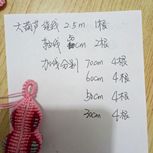 大葫芦 绕线 2.5m 1根
轴线 50cm 2根
加线分别 70cm 4根
60cm 4根
50cm 4根
30cm 4根